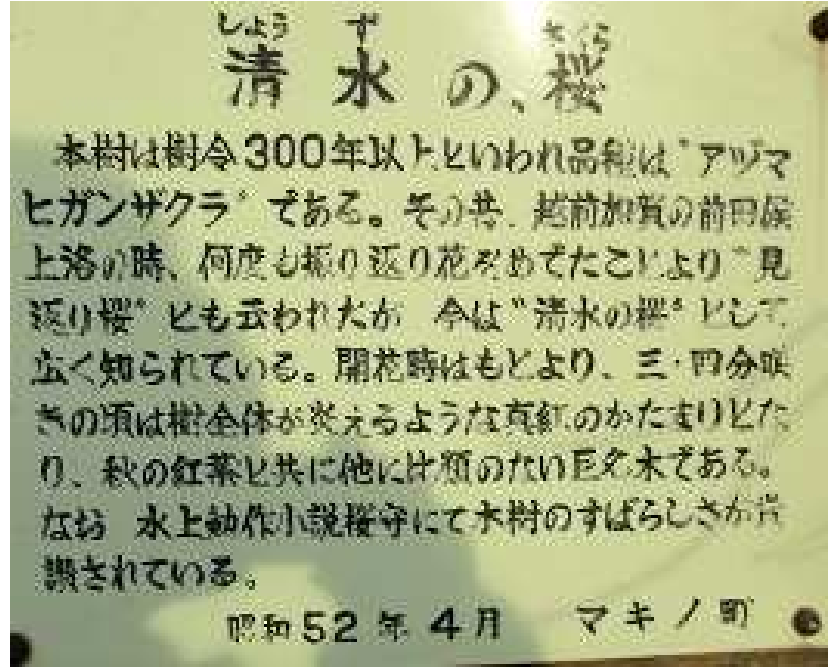 しょうず さくら
清水の、桜
本樹は樹令300年以上といわれ品種は“アヅマ
ヒガンザクラ”である。その昔、越前加賀の前田侯
上洛の時、何度も振り返り花をめでたことより“見
返り桜”とも云われたが 今は“清水の桜”として
広く知られている。開花時はもとより、三・四分咲
きの頃は樹全体が炎えるような真紅のかたまりとな
り、秋の紅葉と共に他に比類のない巨名木である。
なお 水上勉作小説桜守にて本樹のすばらしさが賞
讃されている。
昭和52年4月 マキノ町